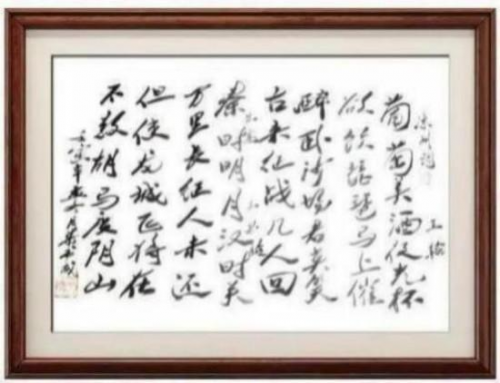 凉州词
王翰
葡萄美酒夜光杯
欲饮琵琶马上催
醉卧沙场君莫笑
古来征战几人回
秦时明月汉时关
万里长征人未还
但使龙城飞将在
不教胡马度阴山